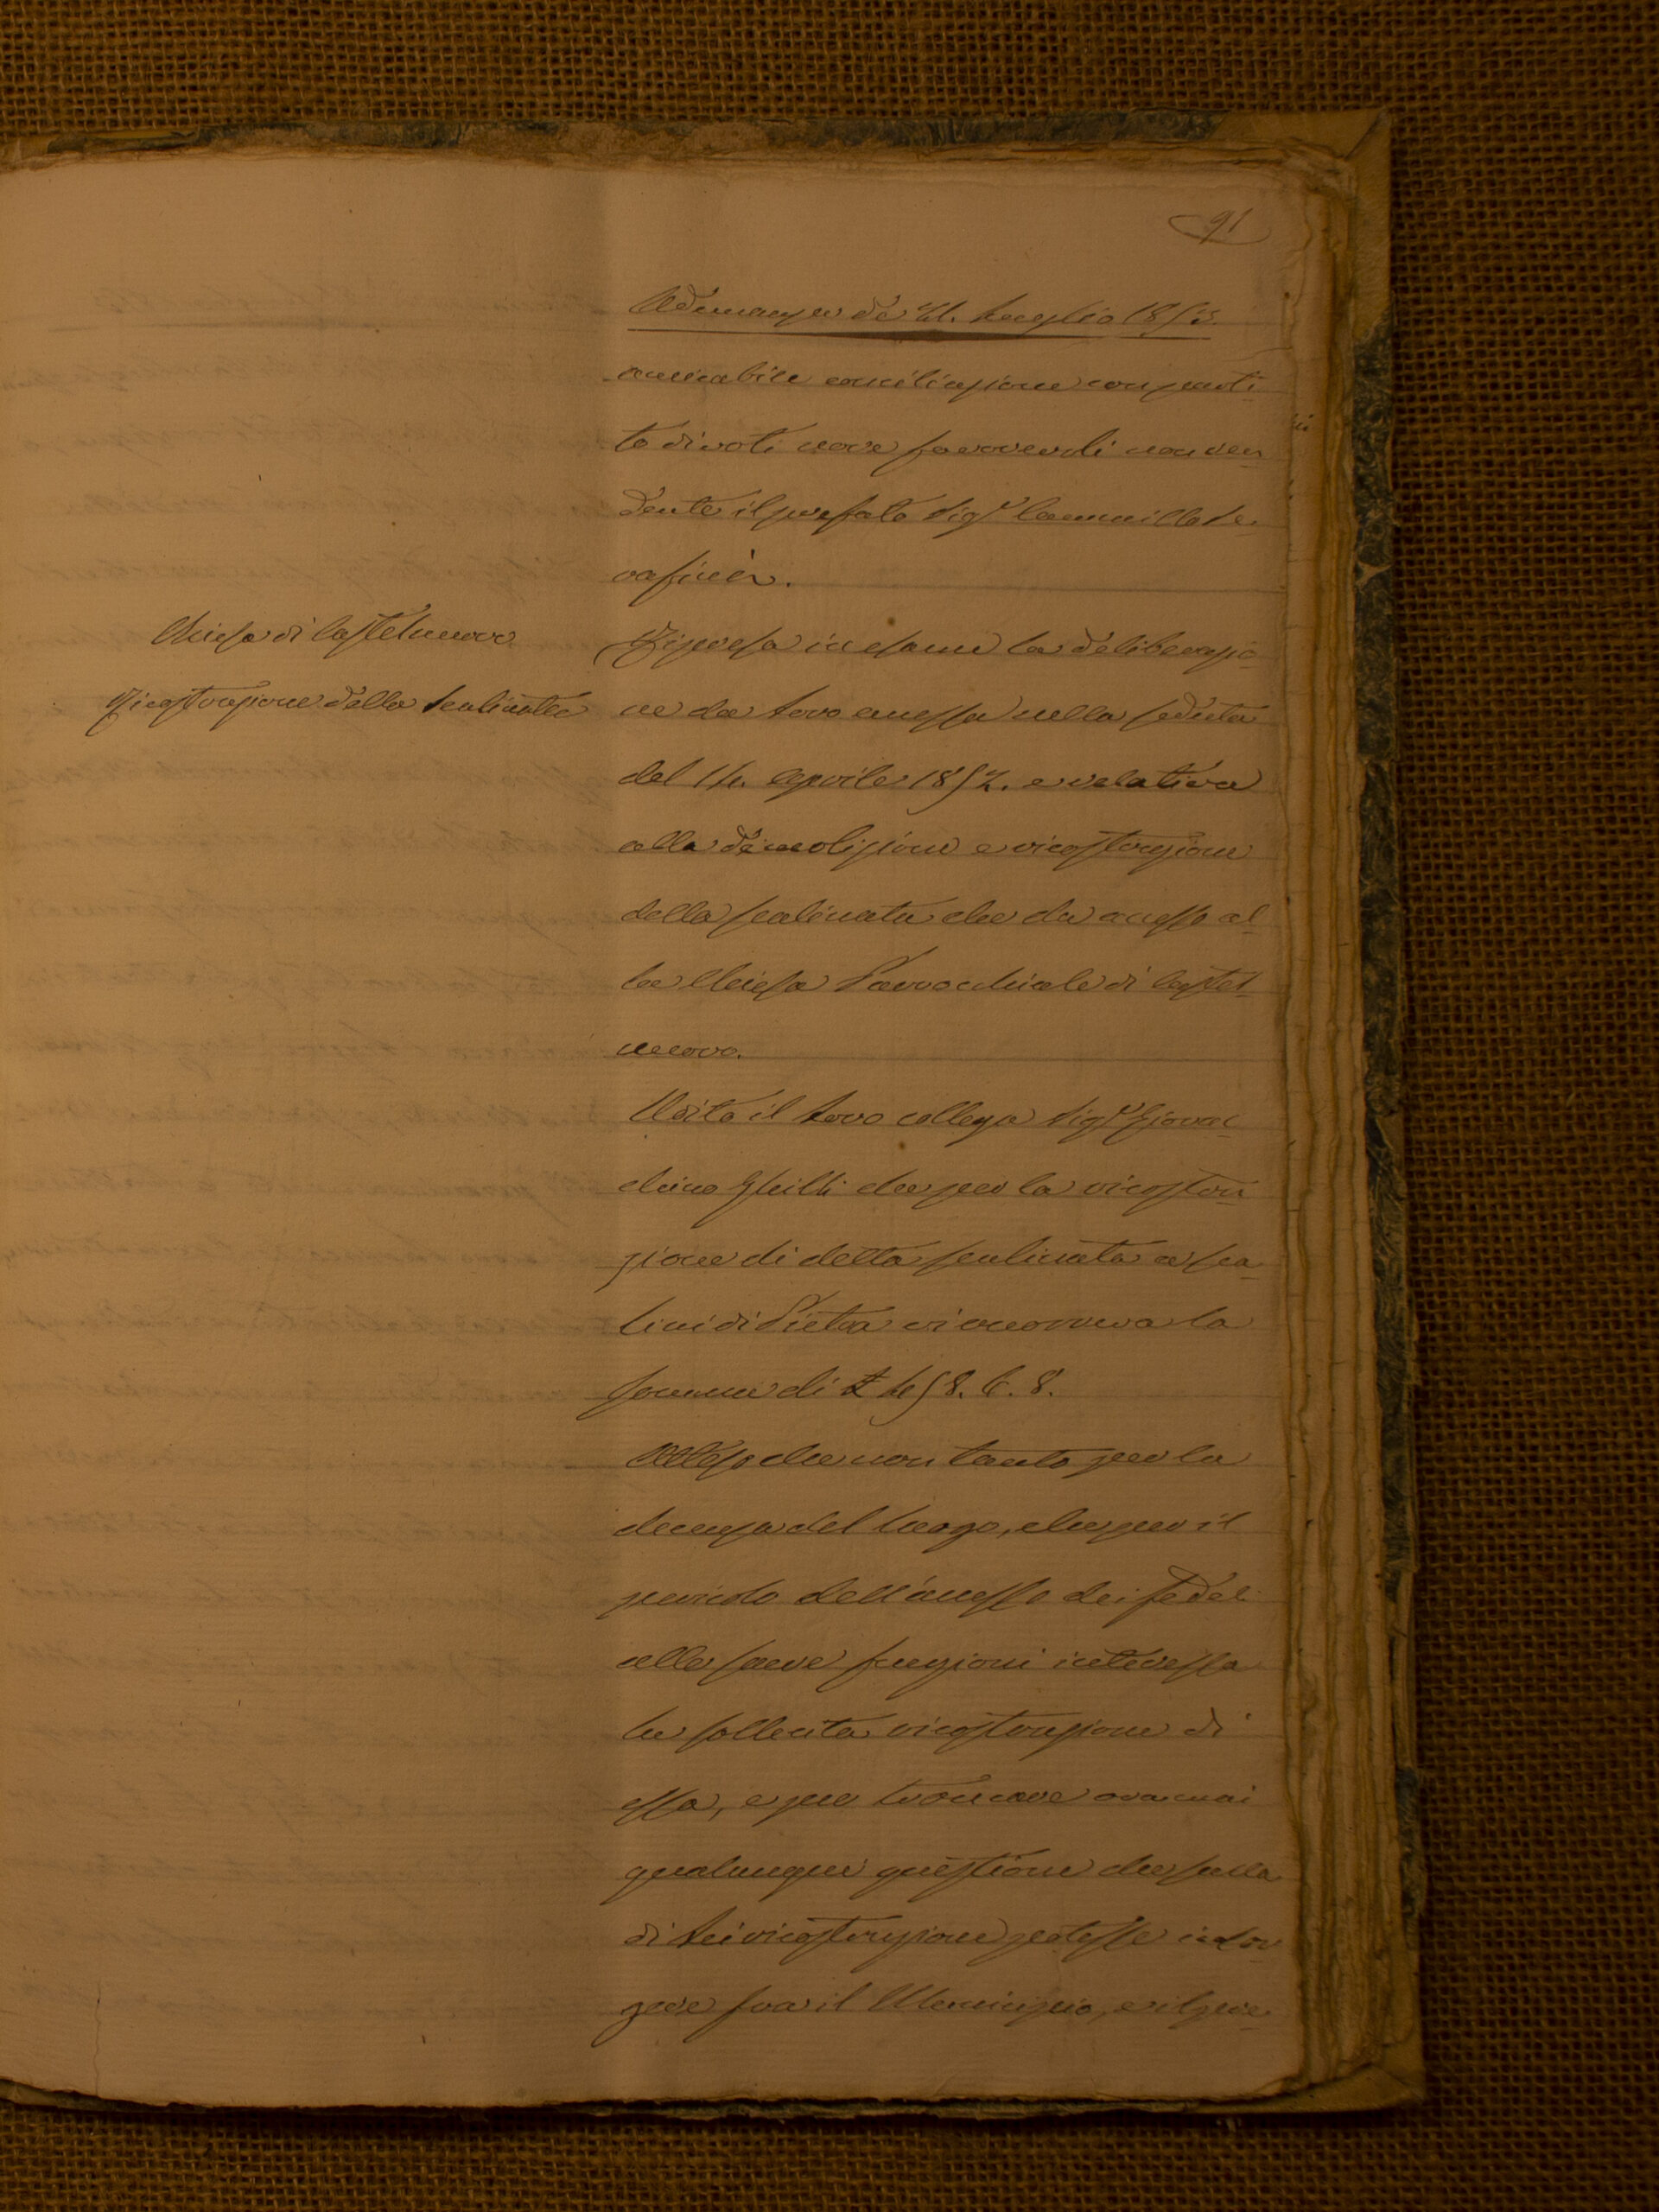 91
Adunanza de' 21. Luglio 1853.
amicabile conciliazione con parti-
to di voti nove favorevoli non ren-
dente il prefato Sig.r Cammillo Se-
rafini.
Chiesa di Castelnuovo
Ricostruzione della Scalinata
Ripresa in esame la deliberazio-
ne da Loro emessa nella seduta
del 14. Aprile 1852. e relativa
alla demolizione e ricostruzione
della scalinata che da accesso al-
la Chiesa Parrocchiale di Castel-
nuovo.
Udito il Loro collega Sig.r Giovac-
chino che per la ricostru-
zione di detta scalinata a sca-
lini di Pietra vi occorreva la
somma di £ 458. 6. 8.
Atteso che non tanto per la
decenza del luogo, che per il
pericolo dell'accesso dei fedeli
alle sacre funzioni interessa
la sollecita ricostruzione di
essa, e per troncare oramai
qualunque questione che sulla
di Lei ricostruzione potesse insor-
gere fra il Municipio, e il pre-